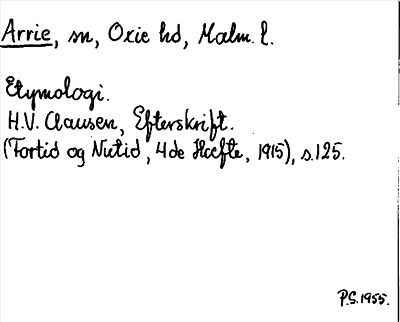 Arrie, sn, Oxie hd, Malm. l.
Etymologi.
H.V. Clausen, Efterskrift.
(Fortid og Nutid, 4de Hæfte, 1915), s. 125.
P.S. 1955.